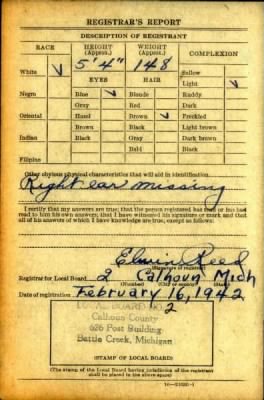 REGISTRAR'S REPORT
DESCRIPTION OF REGISTRANT
RACE HEIGHT (Approx.) WEIGHT (Approx.) COMPLEXION
5' 4" 148 Sallow
White ✓ Light ✓
EYES HAIR Ruddy
Negro Blue ✓ Blonde Dark
Gray Red Freckled
Oriental Hazel Brown ✓ Light brown
Brown Black Dark brown
Indian Black Gray Black
Bald
Filipino
Other obvious physical characteristics that will aid in identification
Right ear missing
I certify that my answers are true; that the person registered has read or has had
read to him his own answers; that I have witnessed his signature or mark and that
all of his answers of which I have knowledge are true, except as follows:
Elwin Reed
(Signature of registrar)
Registrar for Local Board 2 Calhoun Mich
(Number) (City or county) (State)
Date of registration February 16, 1942
LOCAL BOARD NO. 2
Calhoun County
626 Post Building
Battle Creek, Michigan
(STAMP OF LOCAL BOARD)
(The stamp of the Local Board having jurisdiction of the registrant
shall be placed in the above space)